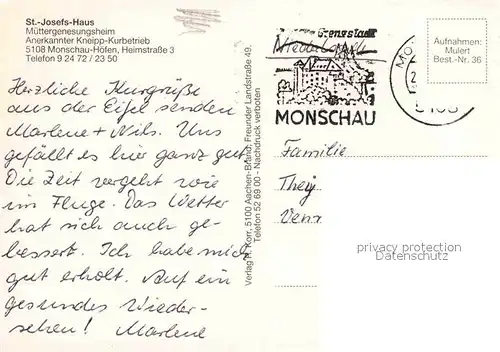 St.-Josefs-Haus
Müttergenesungsheim
Anerkannter Kneipp-Kurbetrieb
5108 Monschau-Höfen, Heimstraße 3
Telefon 9 24 72 / 23 50
Herzliche Kurgrüße
aus der Eifel senden
Marlene + Nils. Uns
gefällt es hier ganz gut.
Die Zeit vergeht wie
im Fluge. Das Wetter
hat sich auch ge-
bessert. Ich habe mich
gut erholt. Auf ein
gesundes Wieder-
sehen! Marlene
Verlag H. Korr, 5100 Aachen-Brand, Freunder Landstraße 49,
Telefon 52 69 00 - Nachdruck verboten
MONSCHAU
MO
5108
Aufnahmen:
Mulert
Best.-Nr. 36
Familie
privacy protection
Datenschutz